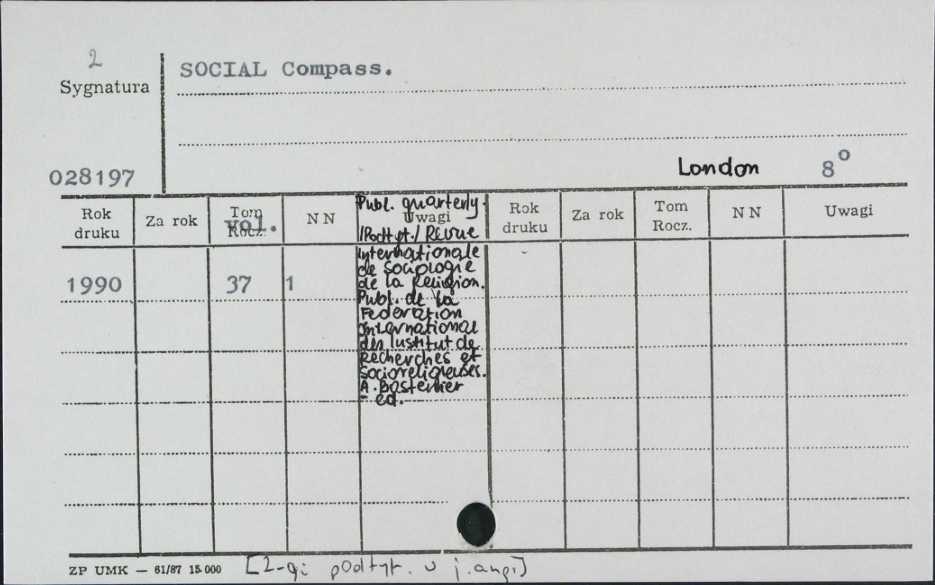 2
Sygnatura
SOCIAL Compass.
028197
London 8°
Rok druku Za rok Tom Rocz. vol. NN Uwagi Rok druku Za rok Tom Rocz. NN Uwagi
1990 37 1
Publ. quarterly.
/Podtyt./ Revue
Internationale
de Sociologie
de la Religion.
Publ. de la
Federation
International
des Institut de
Recherches et
Socioreligieuses.
A. Bastenier
- ed.
ZP UMK — 61/87 15.000 [2-gi podtyt. w j. ang.]